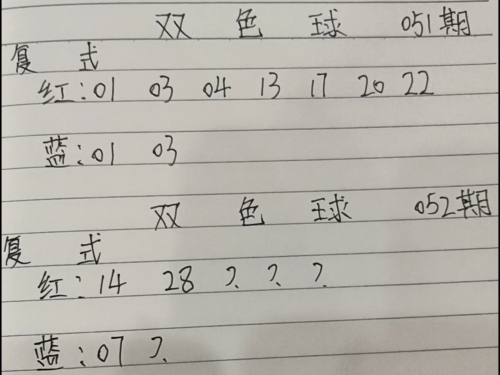 双 色 球 051期
复 式
红:01 03 04 13 17 20 22
蓝:01 03
双 色 球 052期
复 式
红:14 28 ? ? ?
蓝:07 ?